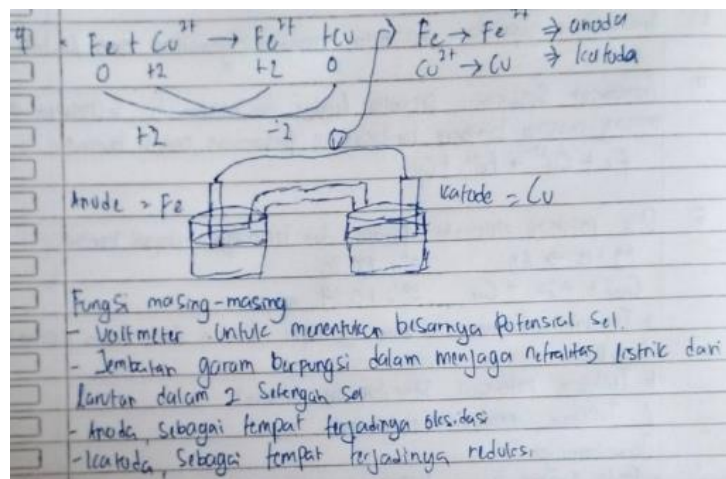 4) Fe + Cu²⁺ → Fe²⁺ + Cu
0 +2 +2 0
+2 -2
Fe → Fe²⁺ ⇒ anoda
Cu²⁺ → Cu ⇒ katoda
V
Anode = Fe
Katode = Cu
Fungsi masing-masing
- Voltmeter untuk menentukan bisarnya potensial sel.
- Jembatan garam berpungsi dalam menjaga netralitas listrik dari
larutan dalam 2 setengah sel
- Anoda, sebagai tempat terjadinya oksidasi
- Katoda, sebagai tempat terjadinya reduksi